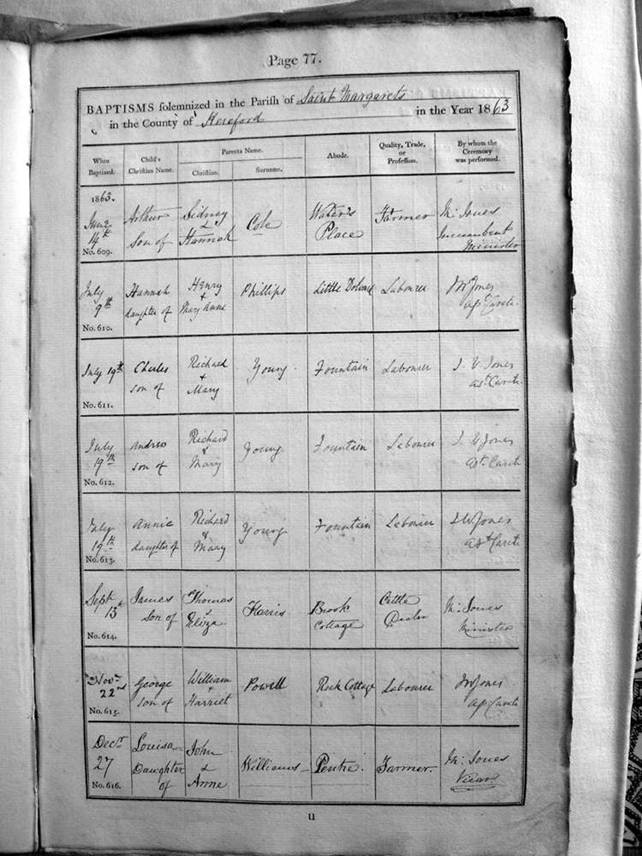 Page 77.
BAPTISMS solemnized in the Parish of Saint Margarets
in the County of Hereford in the Year 1863
When Baptized. Child's Christian Name. Parents Name. Christian. Surname. Abode. Quality, Trade, or Profession. By whom the Ceremony was performed.
1863.
June 14th Arthur Son of Sidney & Hannah Cole Water's Place Farmer M: Jones Incumbent Minister
No. 609.
July 9th Hannah daughter of Henry & Mary Anne Phillips Little Labourer J W Jones Curate
No. 610.
July 19th Charles son of Richard + Mary Young Fountain Labourer Jones Curate
No. 611.
July 19th Andrew son of Richard & Mary Young Fountain Labourer Jones Curate
No. 612.
July 19th Annie daughter of Richard & Mary Young Fountain Labourer J W Jones Curate
No. 613.
Sept 13th James son of Thomas & Eliza Harris Brook Cottage Cattle Dealer M: Jones Minister
No. 614.
Novr 22nd George son of William + Harriet Powell Rock Cottage Labourer J W Jones Curate
No. 615.
Decr 27 Louisa Daughter of John & Anne Williams Pentre Farmer. M: Jones Vicar
No. 616.
u